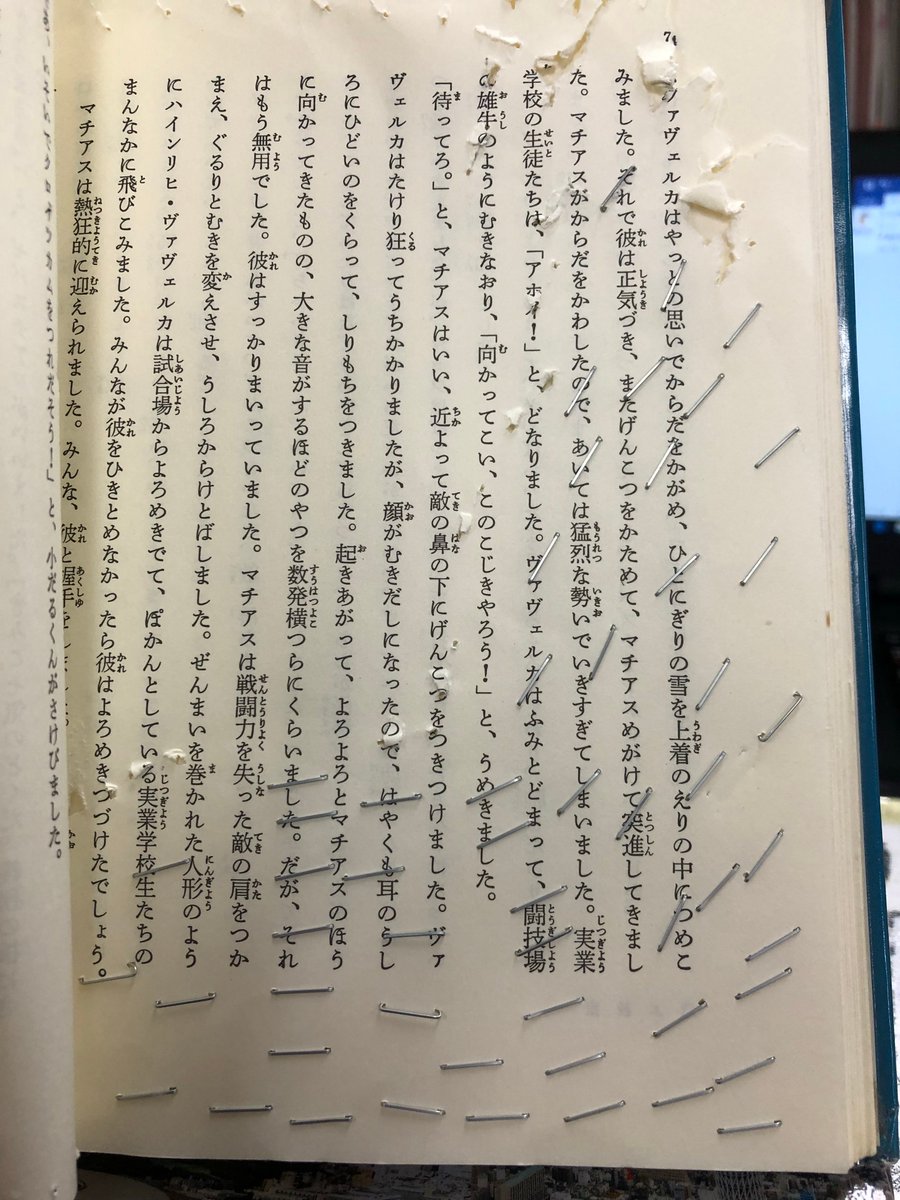 ヴァヴェルカはやっとの思いでからだをかがめ、ひとにぎりの雪を上着のえりの中につめこ
みました。それで彼は正気づき、またげんこつをかためて、マチアスめがけて突進してきまし
た。マチアスがからだをかわしたので、あいては猛烈な勢いでいきすぎてしまいました。実業
学校の生徒たちは、「アホイ!」と、どなりました。ヴァヴェルカはふみとどまって、闘技場
の雄牛のようにむきなおり、「向かってこい、このこじきやろう!」と、うめきました。
「待ってろ。」と、マチアスはいい、近よって敵の鼻の下にげんこつをつきつけました。ヴァ
ヴェルカはたけり狂ってうちかかりましたが、顔がむきだしになったので、はやくも耳のうし
ろにひどいのをくらって、しりもちをつきました。起きあがって、よろよろとマチアスのほう
に向かってきたものの、大きな音がするほどのやつを数発横つらにくらいました。だが、それ
はもう無用でした。彼はすっかりまいっていました。マチアスは戦闘力を失った敵の肩をつか
まえ、ぐるりとむきを変えさせ、うしろからけとばしました。ぜんまいを巻かれた人形のよう
にハインリヒ・ヴァヴェルカは試合場からよろめきでて、ぽかんとしている実業学校生たちの
まんなかに飛びこみました。みんなが彼をひきとめなかったら彼はよろめきつづけたでしょう。
マチアスは熱狂的に迎えられました。みんな、彼と握手を
をつれだそう!」と、小だるくんがさけびました。